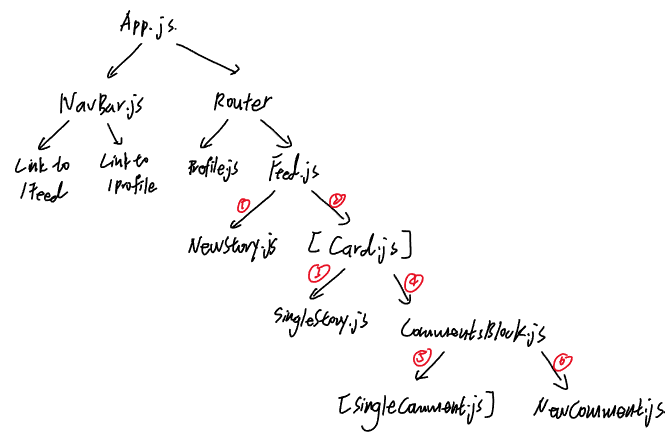 App.js.
NavBar.js
Router
Link to
/Feed
Link to
/profile
Profile.js
Feed.js
①
②
NewStory.js
[ Card.js ]
③
④
SingleStory.js
CommentsBlock.js
⑤
⑥
[SingleComment.js]
NewComment.js